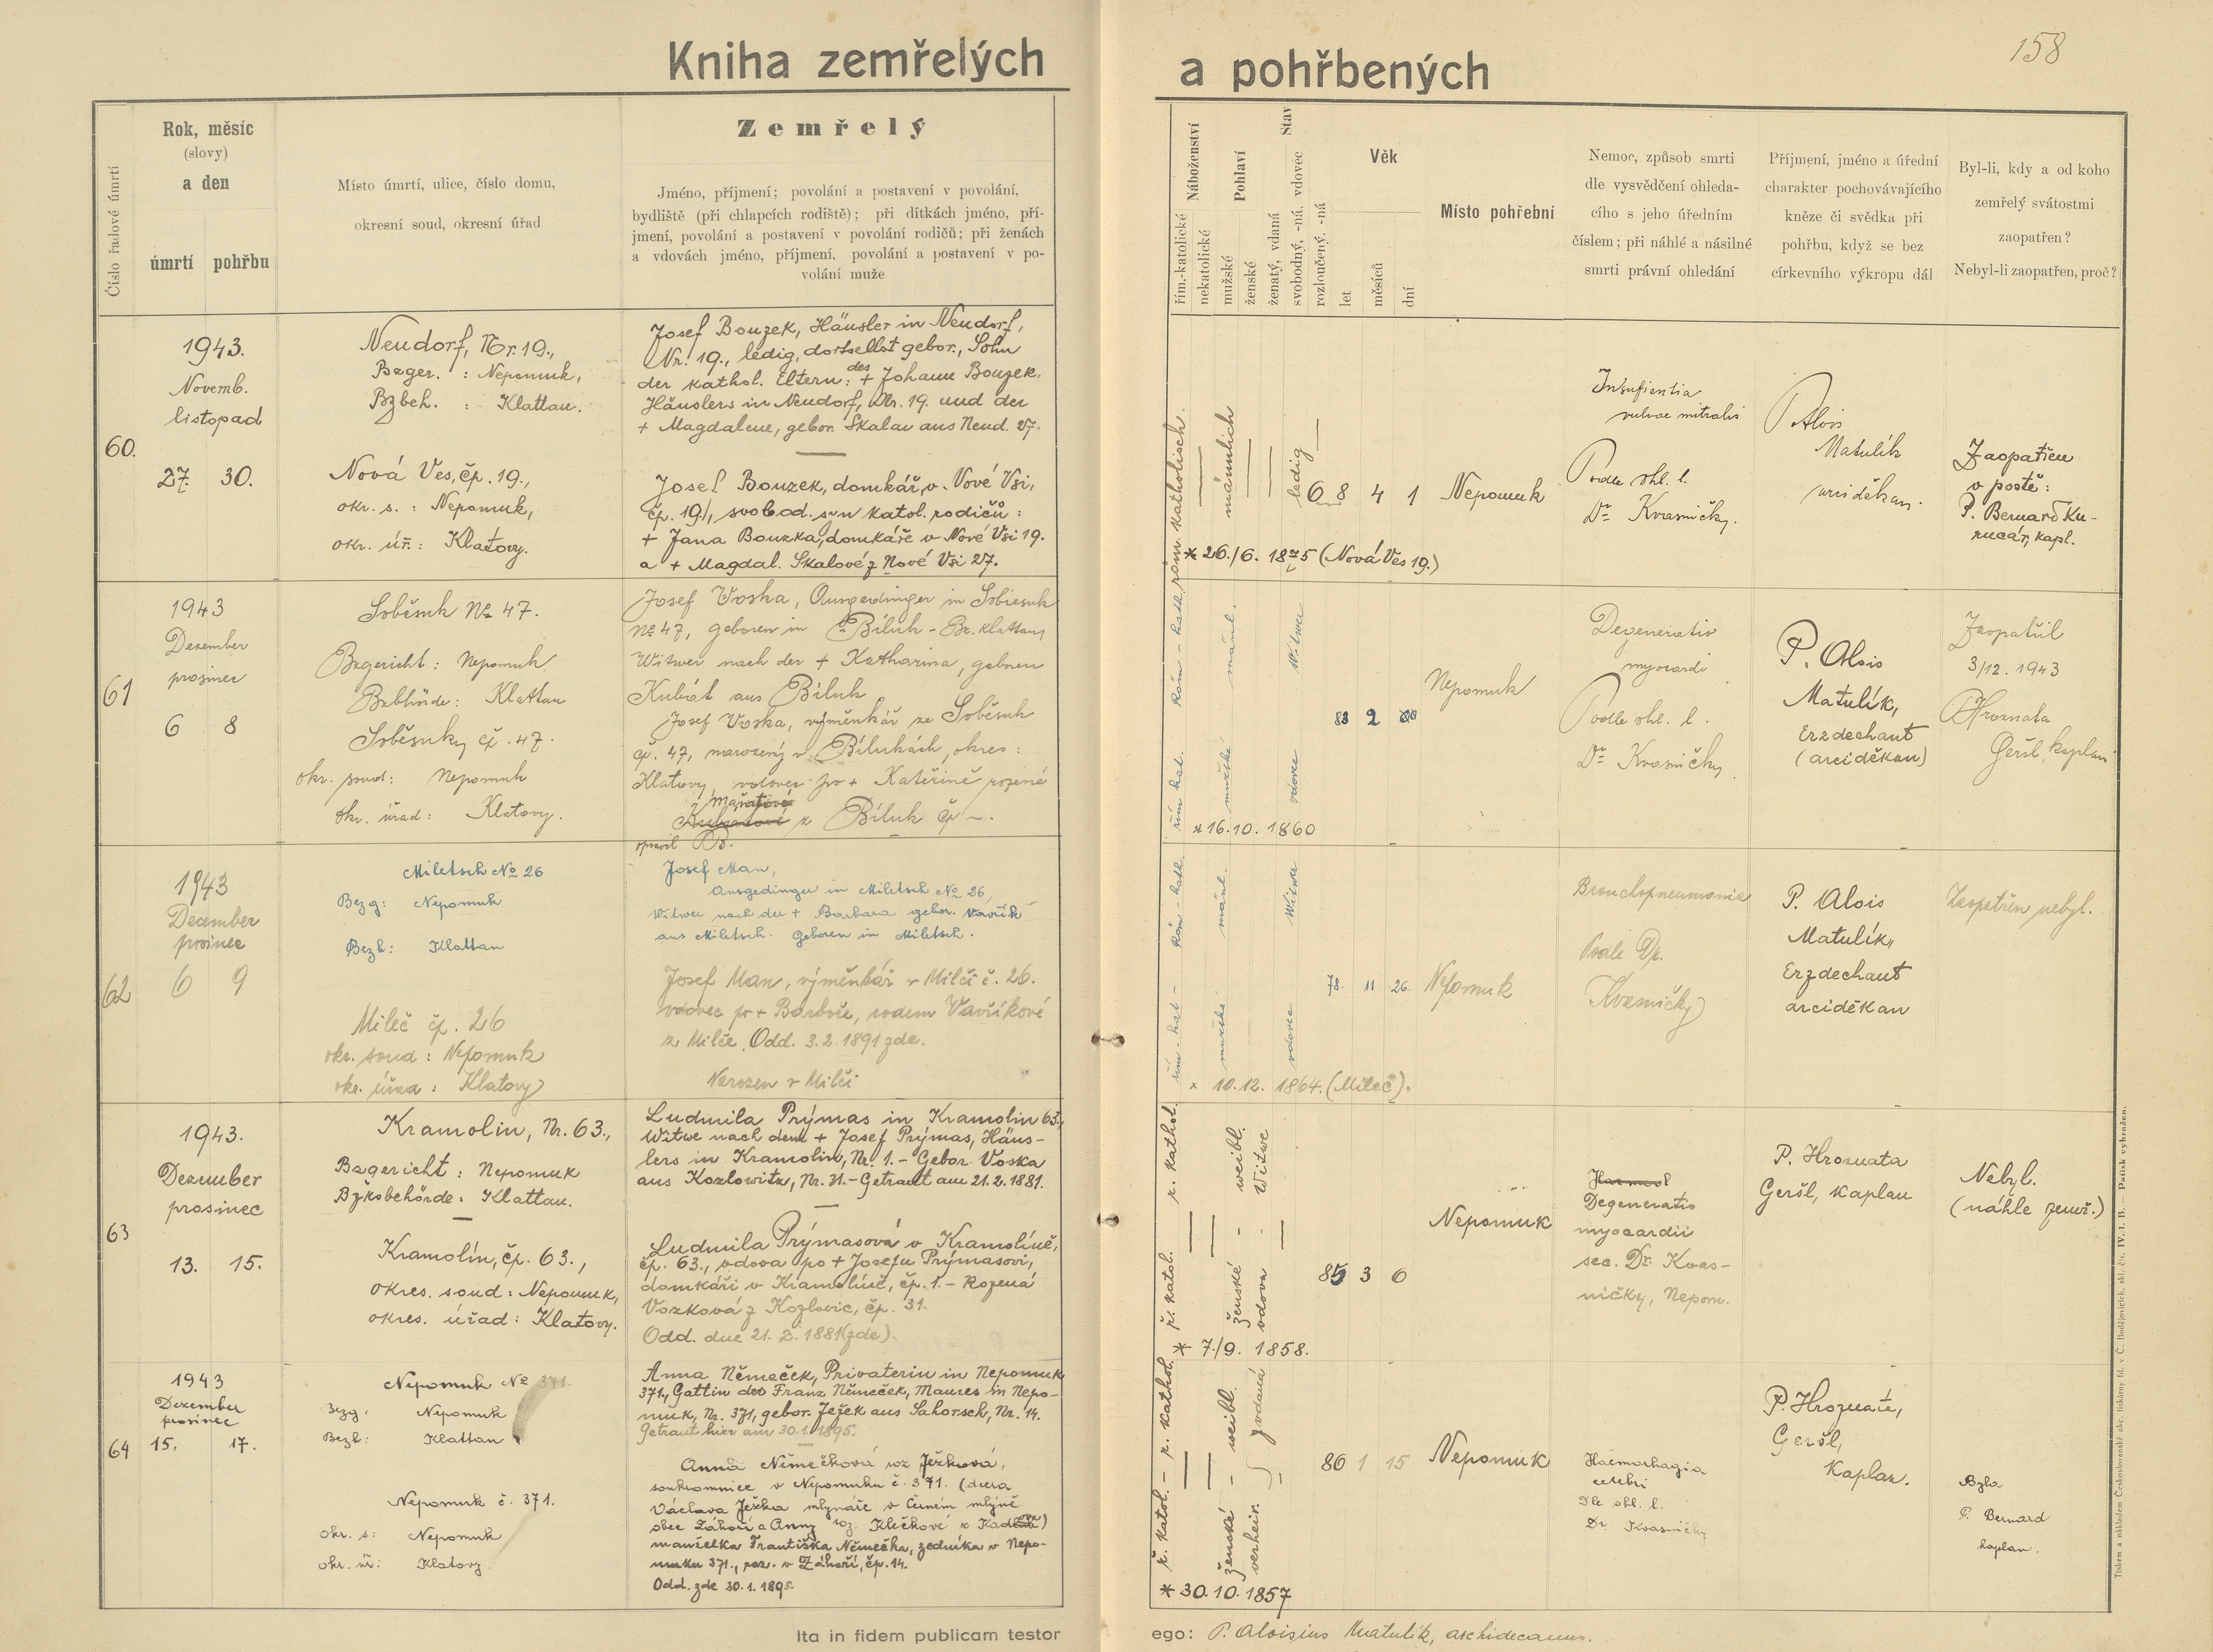 158
Kniha zemřelých
a pohřbených
Číslo řadové úmrtí
Rok, měsíc
(slovy)
a den
úmrtí
pohřbu
Místo úmrtí, ulice, číslo domu,
okresní soud, okresní úřad
Zemřelý
Jméno, příjmení; povolání a postavení v povolání,
bydliště (při chlapcích rodiště); při dítkách jméno, pří-
jmení, povolání a postavení v povolání rodičů; při ženách
a vdovách jméno, příjmení, povolání a postavení v po-
volání muže
Náboženství
řím.-katolické
nekatolické
Pohlaví
mužské
ženské
Stav
ženatý, vdaná
svobodný, -ná, vdovec
rozloučený, -ná
Věk
let
měsíců
dní
Místo pohřební
Nemoc, způsob smrti
dle vysvědčení ohleda-
cího s jeho úředním
číslem; při náhlé a násilné
smrti právní ohledání
Příjmení, jméno a úřední
charakter pochovávajícího
kněze či svědka při
pohřbu, když se bez
církevního výkropu dál
Byl-li, kdy a od koho
zemřelý svátostmi
zaopatřen?
Nebyl-li zaopatřen, proč?
60.
1943.
Novemb.
listopad
27. 30.
Neudorf, Nr. 19.,
Bzger. : Nepomuk,
Bzbeh. : Klattau.
Nová Ves, čp. 19.,
okr. s. : Nepomuk,
okr. úř.: Klatovy.
Josef Bouzek, Häusler in Neudorf,
Nr. 19., ledig, dortselbst gebor., Sohn
der kathol. Eltern: des + Johann Bouzek,
Häuslers in Neudorf, Nr. 19. und der
+ Magdalene, gebor. Skalau aus Neud. 27.
Josef Bouzek, domkář, v. Nové Vsi,
čp. 19., svobod. syn katol. rodičů:
+ Jana Bouzka, domkáře v Nové Vsi 19.
a + Magdal. Skalové z Nové Vsi 27.
röm. katholisch.
männlich
ledig
68 4 1
Nepomuk
Insuficientia
valvae mitralis
Podle ohl. l.
Dr Kvasničky.
P. Alois
Matulík
arciděkan.
Zaopatřen
v poště:
P. Bernard Ku-
rucár, kapl.
* 26./6. 1875 (Nová Ves 19.)
61
1943
Dezember
prosinec
6 8
Soběsuk No 47.
Bzgericht: Nepomuk
Bzbhörde: Klattau
Soběsuky čp. 47.
okr. soud: Nepomuk
okr. úřad: Klatovy.
Josef Voska, Ausgedinger in Sobiesuk
No 47, geboren in Biluk - Bz. Klattau,
Witwer nach der + Katharina, geboren
Kubát aus Biluk
Josef Voska, výměnkář ze Soběsuk
čp. 47, narozený v Bílukách, okres:
Klatovy, vdovec po + Kateřině rozené
Mašatové
z Bíluk čp –.
opravil
Röm - kath
řím kat.
mänl.
mužské
Witwer
vdovec
83 2
Nepomuk
Degeneratio
myocardi
Podle ohl. l.
Dr Kvasničky
P. Alois
Matulík,
Erzdechant
(arciděkan)
Zaopatřil
3/12. 1943
P. Hroznata
Geršl, kaplan
* 16.10. 1860
62
1943
December
prosinec
6 9
Miletsch No 26
Bezg: Nepomuk
Bezb: Klattau
Mileč čp. 26
okr. soud: Nepomuk
okr. úřad: Klatovy
Josef Man,
Ausgedinger in Miletsch No 26,
Witwer nach der + Barbara gebor. Vavřík
aus Miletsch. Geboren in Miletsch.
Josef Man, výměnkář v Milči č. 26.
vdovec po + Barboře, rodem Vavříkové
z Milče. Odd. 3.2.1891 zde.
Narozen v Milči
Röm - kath.
řím - kat -
mänl.
mužské
Witwer
vdovec
78. 11 26.
Nepomuk
Bronchopneumonia
Podle Dr.
Kvasničky
P. Alois
Matulík,
Erzdechant
arciděkan
Zaopatřen nebyl.
* 10.12. 1864. (Mileč).
63
1943.
Dezember
prosinec
13. 15.
Kramolin, Nr. 63.,
Bzgericht: Nepomuk
Bzksbehörde: Klattau.
Kramolín, čp. 63.,
okres. soud: Nepomuk,
okres. úřad: Klatovy.
Ludmila Prýmas in Kramolin 63.,
Witwe nach dem + Josef Prýmas, Häus-
lers in Kramolin, Nr. 1. - Gebor. Voska
aus Kozlowitz, Nr. 31. - Getraut am 21.2.1881.
Ludmila Prýmasová v Kramolíně,
čp. 63., vdova po + Josefu Prýmasovi,
domkáři v Kramolíně, čp. 1. - Rozená
Vosková z Kozlovic, čp. 31.
Odd. dne 21.2.1881 (zde).
r. kathol.
ř. katol.
weibl.
ženské
Witwe
vdova
85 3 6
Nepomuk
Degeneratio
myocardii
sec. Dr. Kvas-
ničky, Nepom.
P. Hroznata
Geršl, kaplan
Nebyl.
(náhle zemř.)
* 7./9. 1858.
64
1943
Dezember
prosinec
15. 17.
Nepomuk No 371
Bezg: Nepomuk
Bezb: Klattau
Nepomuk č. 371.
okr. s: Nepomuk
okr. úř: Klatovy
Anna Němeček, Privaterin in Nepomuk
371., Gattin des Franz Němeček, Maurers in Nepo-
muk, Nr. 371, gebor. Ježek aus Sahorsch, Nr. 14.
Getraut hier am 30.1.1895.
Anna Němečková roz Ježková,
soukromnice v Nepomuku č. 371. (dcera
Václava Ježka mlynáře v Černém mlýně
obec Záhoří a Anny roz. Klečkové z
manželka Františka Němečka, zedníka v Nepo-
muku 371., nar. v Záhoří, čp. 14.
Odd. zde 30.1.1895.
r. kathol.
ř. katol.
weibl.
ženské
vdaná
verheir.
86 1 15
Nepomuk
Haemorhagia
cerebri
Dle ohl. l.
Dr Kvasničky
P. Hroznata,
Geršl,
Kaplan.
Byla
P. Bernard
kaplan.
* 30.10.1857
Ita in fidem publicam testor
ego: P. Aloisius Matulík, archidecanus.
Tiskem a nákladem Českoslovanské akc. tiskárny fil. v Č. Budějovicích, skl. čís. IV. 1. B. — Patisk vyhražen.